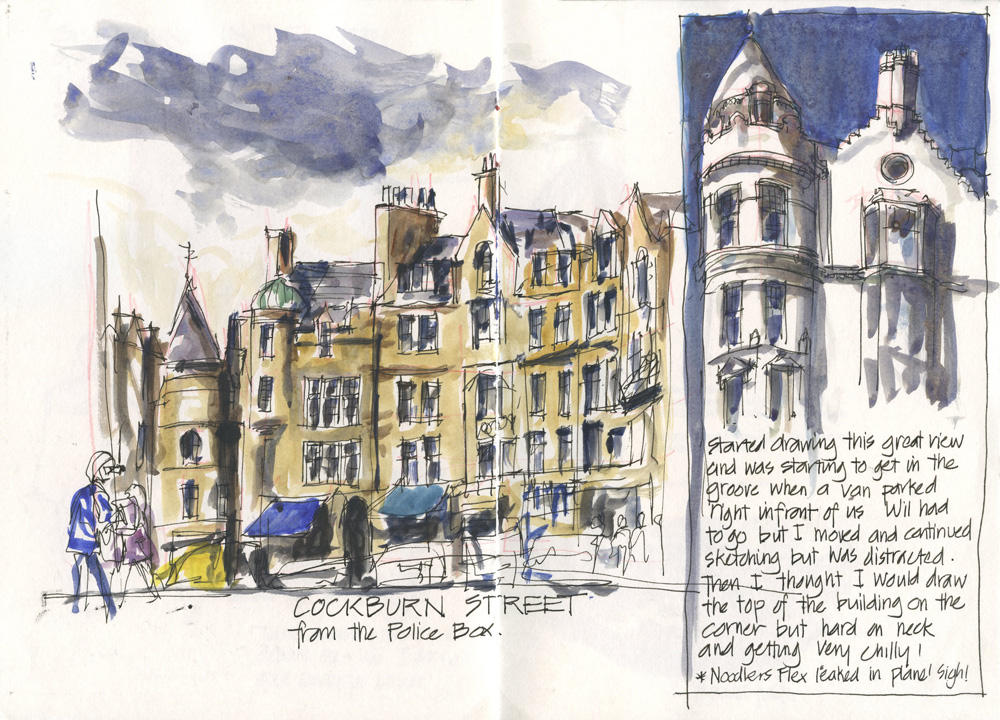 COCKBURN STREET
from the Police Box.
Started drawing this great view
and was starting to get in the
groove when a van parked
right infront of us Wil had
to go but I moved and continued
sketching but was distracted.
Then I thought I would draw
the top of the building on the
corner but hard on neck
and getting very chilly!
*Noodlers Flex leaked in plane! Sigh!